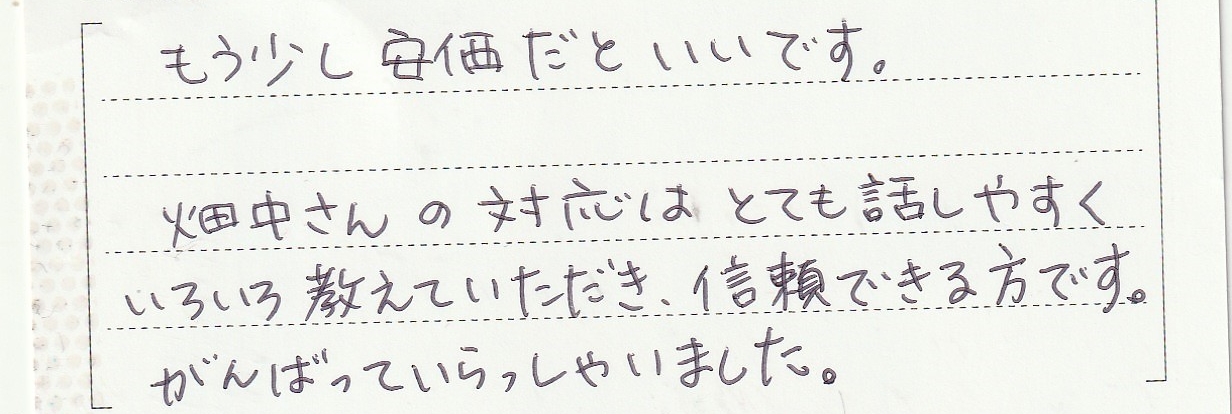 もう少し安価だといいです。
畑中さんの対応はとても話しやすく
いろいろ教えていただき、信頼できる方です。
がんばっていらっしゃいました。